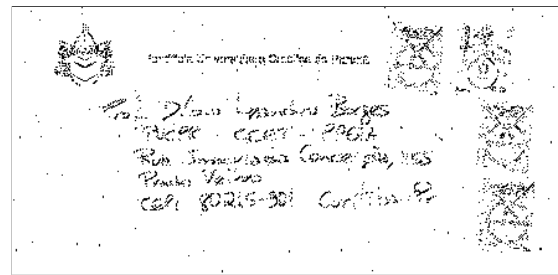 Pontifícia Universidade Católica do Paraná
Borges
PUCPR - CCET - PPGIA
Rua Imaculada Conceição, 1155
Prado Velho
CEP: 80215-901 Curitiba PR